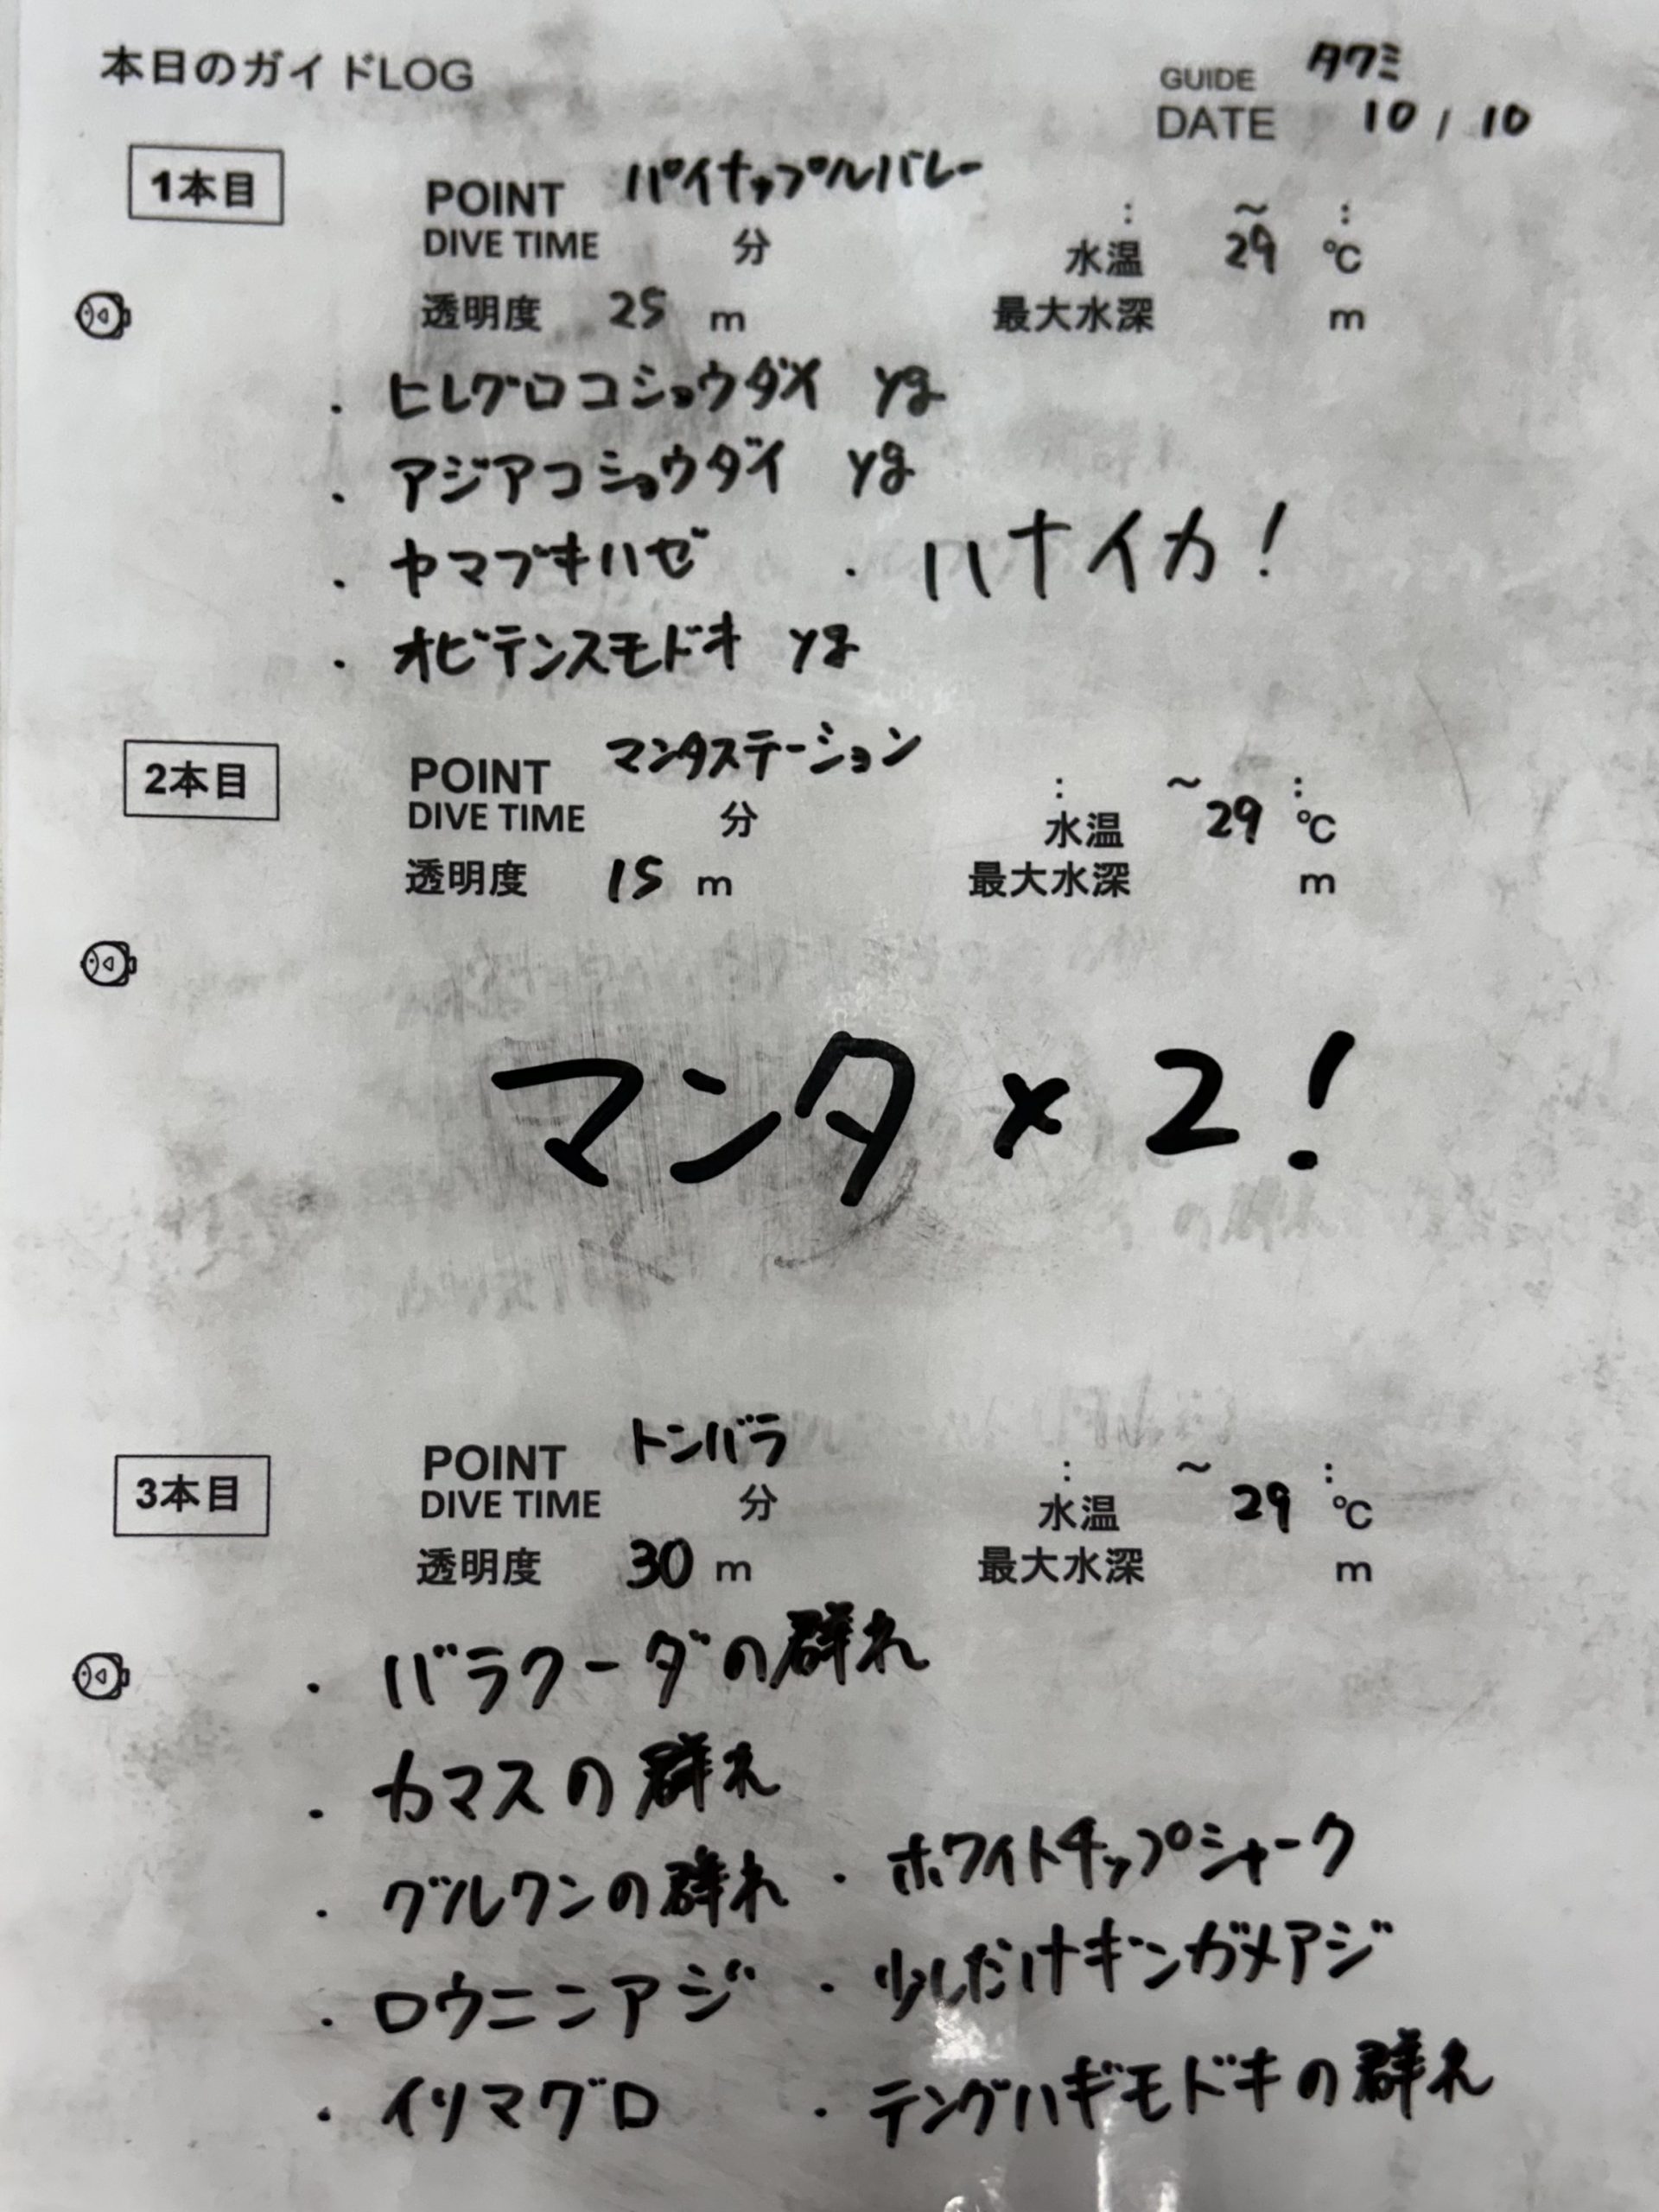 本日のガイドLOG
GUIDE タクミ
DATE 10 / 10
1本目
POINT パイナップルバレー : ～ :
DIVE TIME 分 水温 29 ℃
透明度 25 m 最大水深 m
・ヒレグロコショウダイ yg
・アジアコショウダイ yg
・ヤマブキハゼ ・ハナイカ!
・オビテンスモドキ yg
2本目
POINT マンタステーション : ～ :
DIVE TIME 分 水温 29 ℃
透明度 15 m 最大水深 m
マンタ×2!
3本目
POINT トンバラ : ～ :
DIVE TIME 分 水温 29 ℃
透明度 30 m 最大水深 m
・バラクーダの群れ
・カマスの群れ
・グルクンの群れ ・ホワイトチップシャーク
・ロウニンアジ ・少しだけギンガメアジ
・イソマグロ ・テングハギモドキの群れ